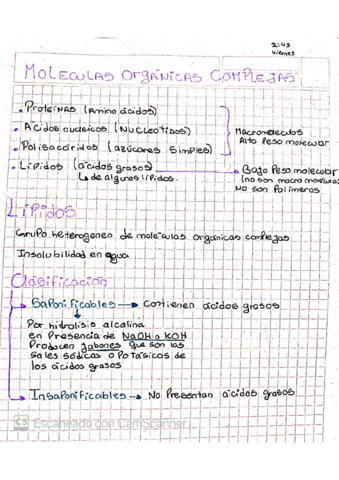 21:45
viernes
MOLECULAS ORGÁNICAS COMPLEJAS
• Proteínas (Amino ácidos)
• Ácidos nucleicos (NUCLEOTIDOS)
• Polisacáridos (azúcares simples)
Macromeleculos
Alto Peso molecular
• Lípidos (ácidos grasos)
↳ de algunos lípidos.
Bajo Peso molecular
(no son macro moleculas
NO son Polímeros
Lípidos
Grupo heterogeneo de moleculas orgánicas complejas
Insolubilidad en agua
Clasificación
Saponificables → Contienen ácidos grasos
Por hidrolisis alcalina
en Presencia de NaOH o KOH
Producen jabones que son las
Sales sódicas o Potásicos de
los ácidos grasos
Insaponificables → No Presentan ácidos grasos
CS Escaneado con CamScanner